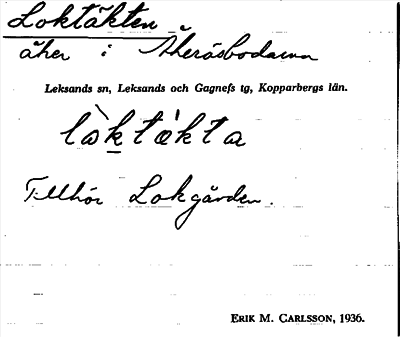 Loktäkten
åker i Åkeråsbodarna
Leksands sn, Leksands och Gagnefs tg, Kopparbergs län.
Tillhör Lokgården.
ERIK M. CARLSSON, 1936.